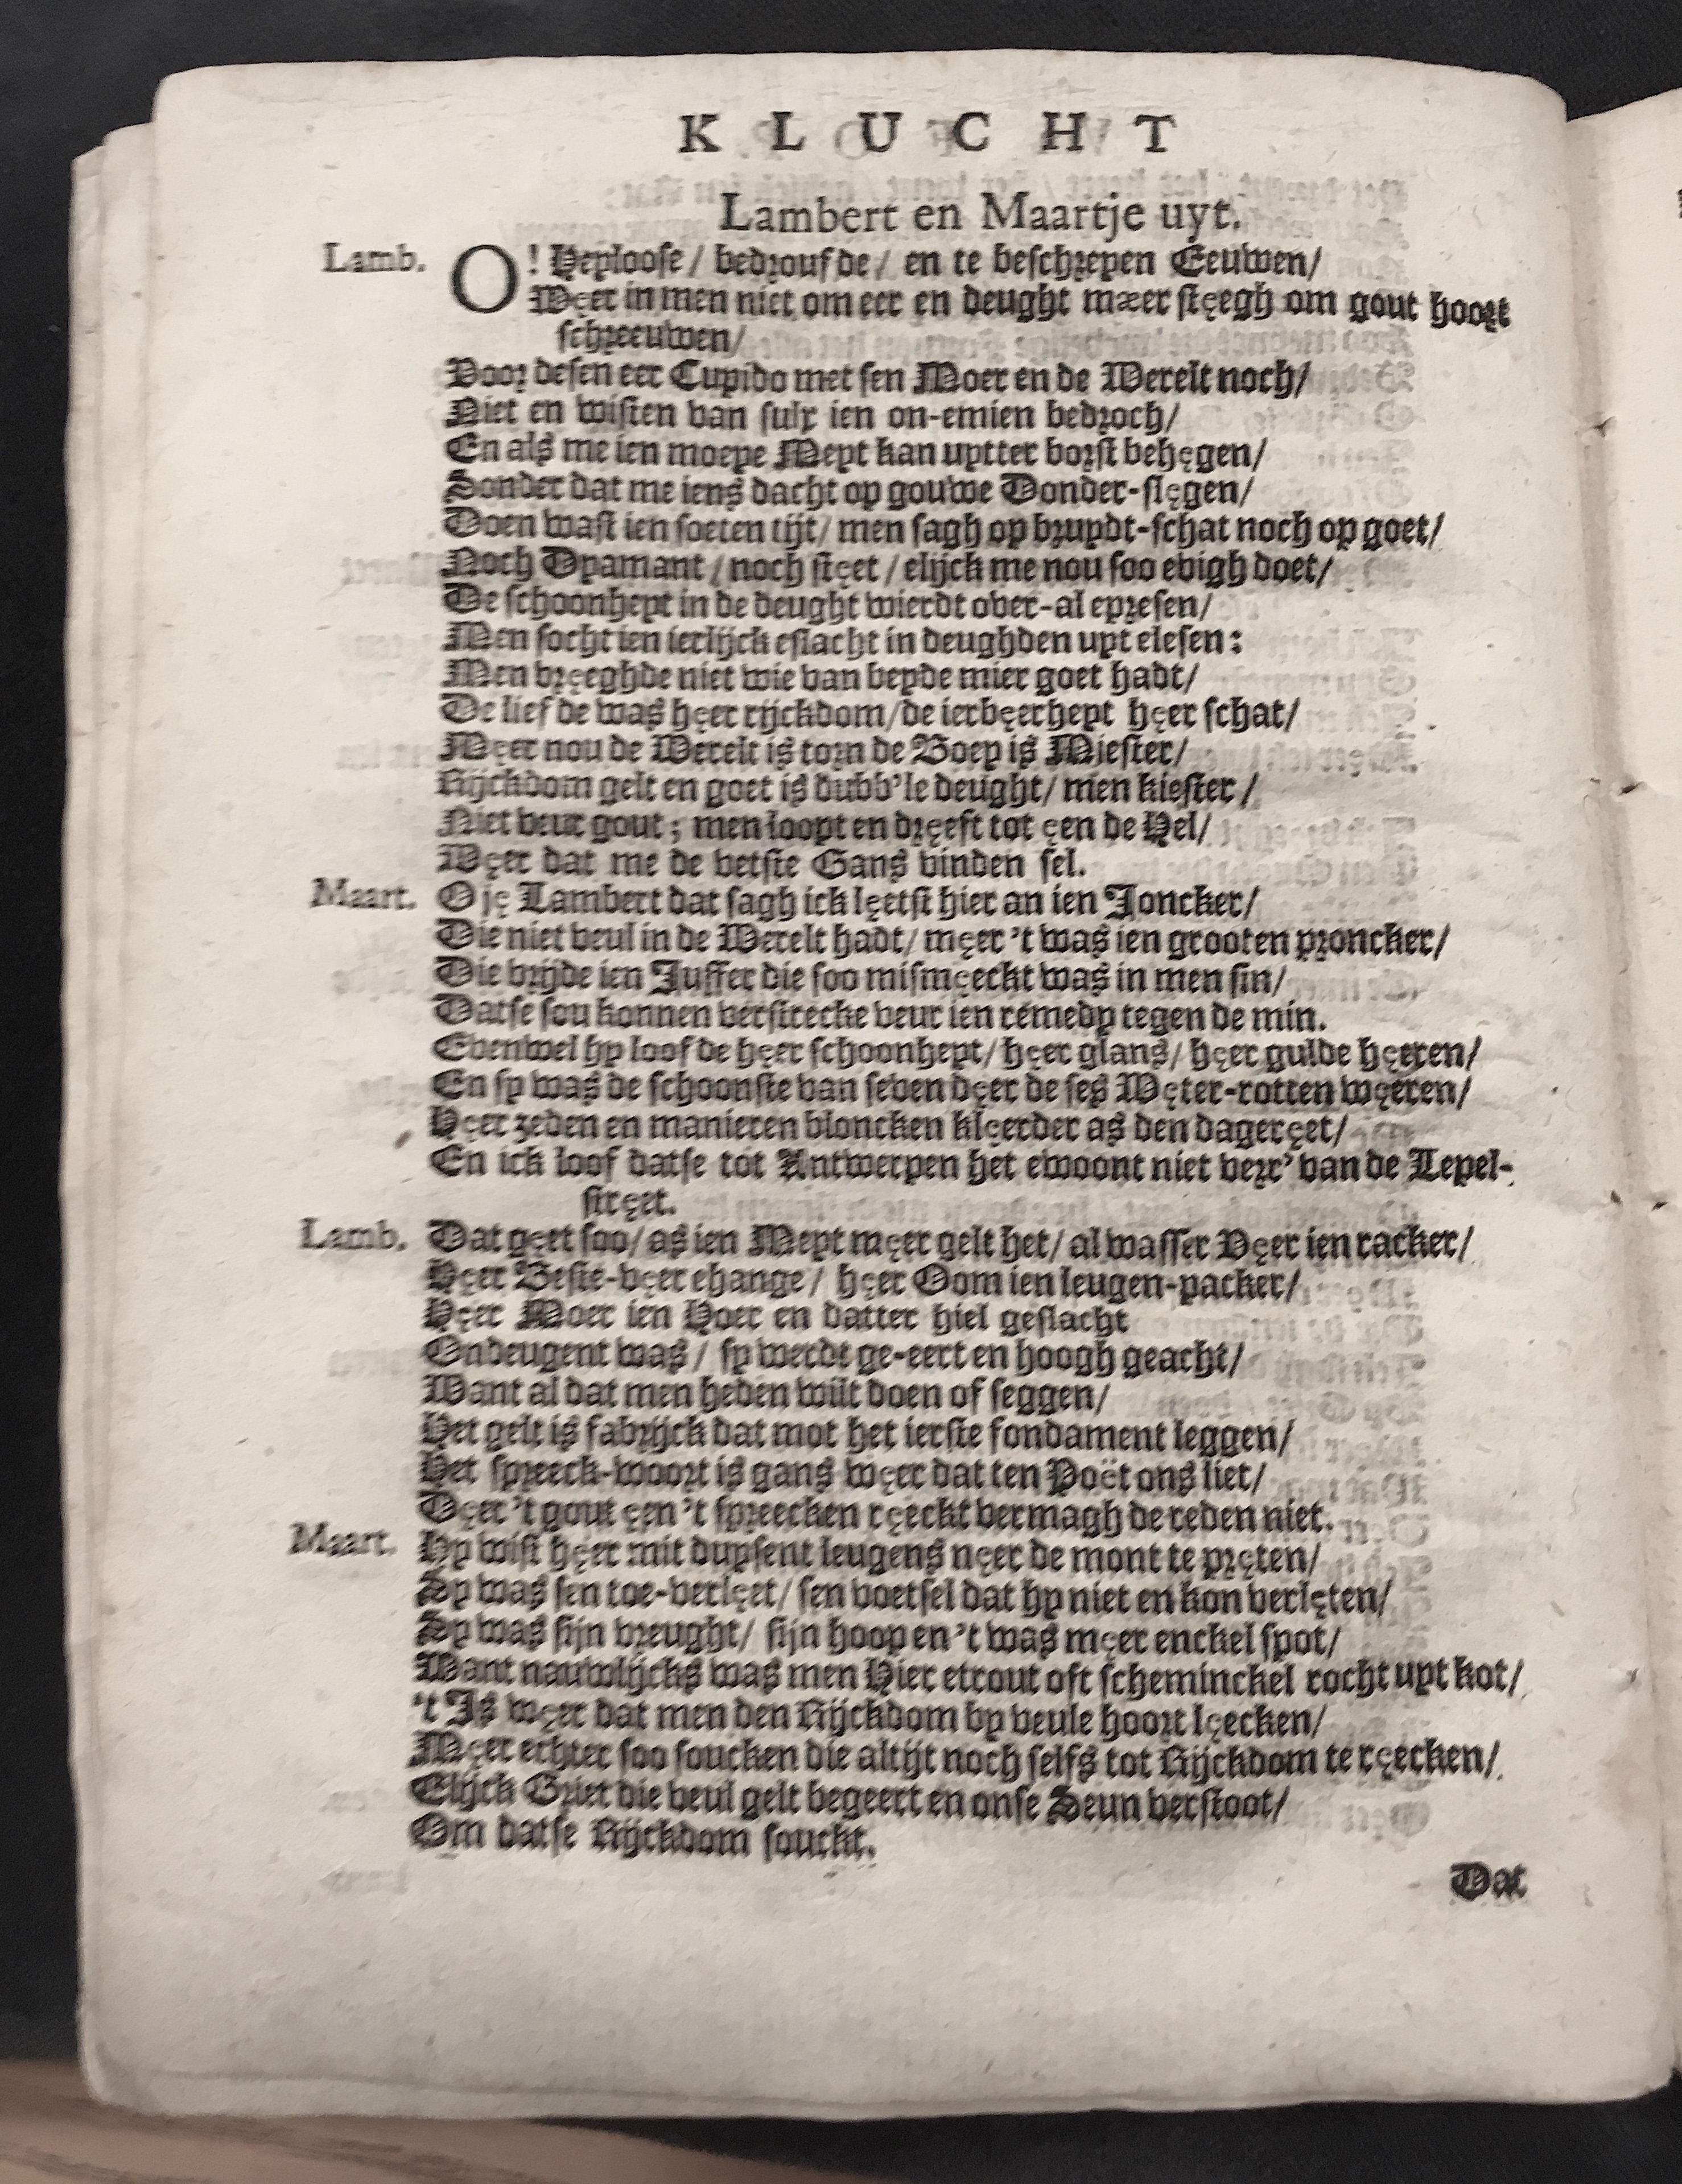 KLUCHT
Lambert en Maartje uyt.
Lamb. O! Heyloose / bedroufde / en te beschreyen Eeuwen /
Węer in men niet om eer en deught mæer stęegh om gout hoort
schreeuwen /
Voor desen eer Cupido met sen Moer en de Werelt noch /
Niet en wisten van sulx ien on-emien bedroch /
En als me ien moeye Meyt kan uytter borst behęgen /
Sonder dat me iens dacht op gouwe Donder-slęgen /
Doen wast ien soeten tijt / men sagh op bruydt-schat noch op goet /
Noch Dyamant / noch stęet / elijck me nou soo evigh doet /
De schoonheyt in de deught wierdt over-al epresen /
Men socht ien ierlijck eslacht in deughden uyt elesen :
Men vręeghde niet wie van beyde mier goet hadt /
De liefde was hęer rijckdom / de ierbęerheyt hęer schat /
Męer nou de Werelt is torn de Boey is Miester /
Rijckdom gelt en goet is dubb'le deught / men kiester /
Niet veur gout ; men loopt en dręeft tot ęen de Hel /
Węer dat me de vetste Gans vinden sel.
Maart. O ję Lambert dat sagh ick lęetst hier an ien Joncker /
Die niet veul in de Werelt hadt / męer 't was ien grooten proncker /
Die vrijde ien Juffer die soo mismęeckt was in men sin /
Datse sou konnen verstrecke veur ien remedy tegen de min.
Evenwel hy loofde hęer schoonheyt / hęer glans / hęer gulde hęeren /
En sy was de schoonste van seven dęer de ses Węter-rotten węeren /
Hęer zeden en manieren bloncken klęerder as den dageręet /
En ick loof datse tot Antwerpen het ewoont niet verr' van de Lepel-
stręet.
Lamb. Dat gęet soo / as ien Meyt męer gelt het / al wasser Vęer ien racker /
Hęer Beste-vęer ehange / hęer Oom ien leugen-packer /
Hęer Moer ien Hoer en datter hiel geslacht
Ondeugent was / sy werdt ge-eert en hoogh geacht /
Want al dat men heden wilt doen of seggen /
Het gelt is fabrijck dat mot het ierste fondament leggen /
Het spreeck-woort is gans węer dat ten Poët ons liet /
Dęer 't gout ęen 't spreecken ręeckt vermagh de reden niet.
Maart. Hy wist hęer mit duysent leugens nęer de mont te pręten /
Sy was sen toe-verlęet / sen voetsel dat hy niet en kon verlęten /
Sy was sijn vreught / sijn hoop en 't was męer enckel spot /
Want nauwlijcks was men Hier etrout oft scheminckel rocht uyt kot /
't Is węer dat men den Rijckdom by veule hoort lęecken /
Męer echter soo soucken die altijt noch selfs tot Rijckdom te ręecken /
Elijck Griet die veul gelt begeert en onse Seun verstoot /
Om datse Rijckdom souckt.
Dat